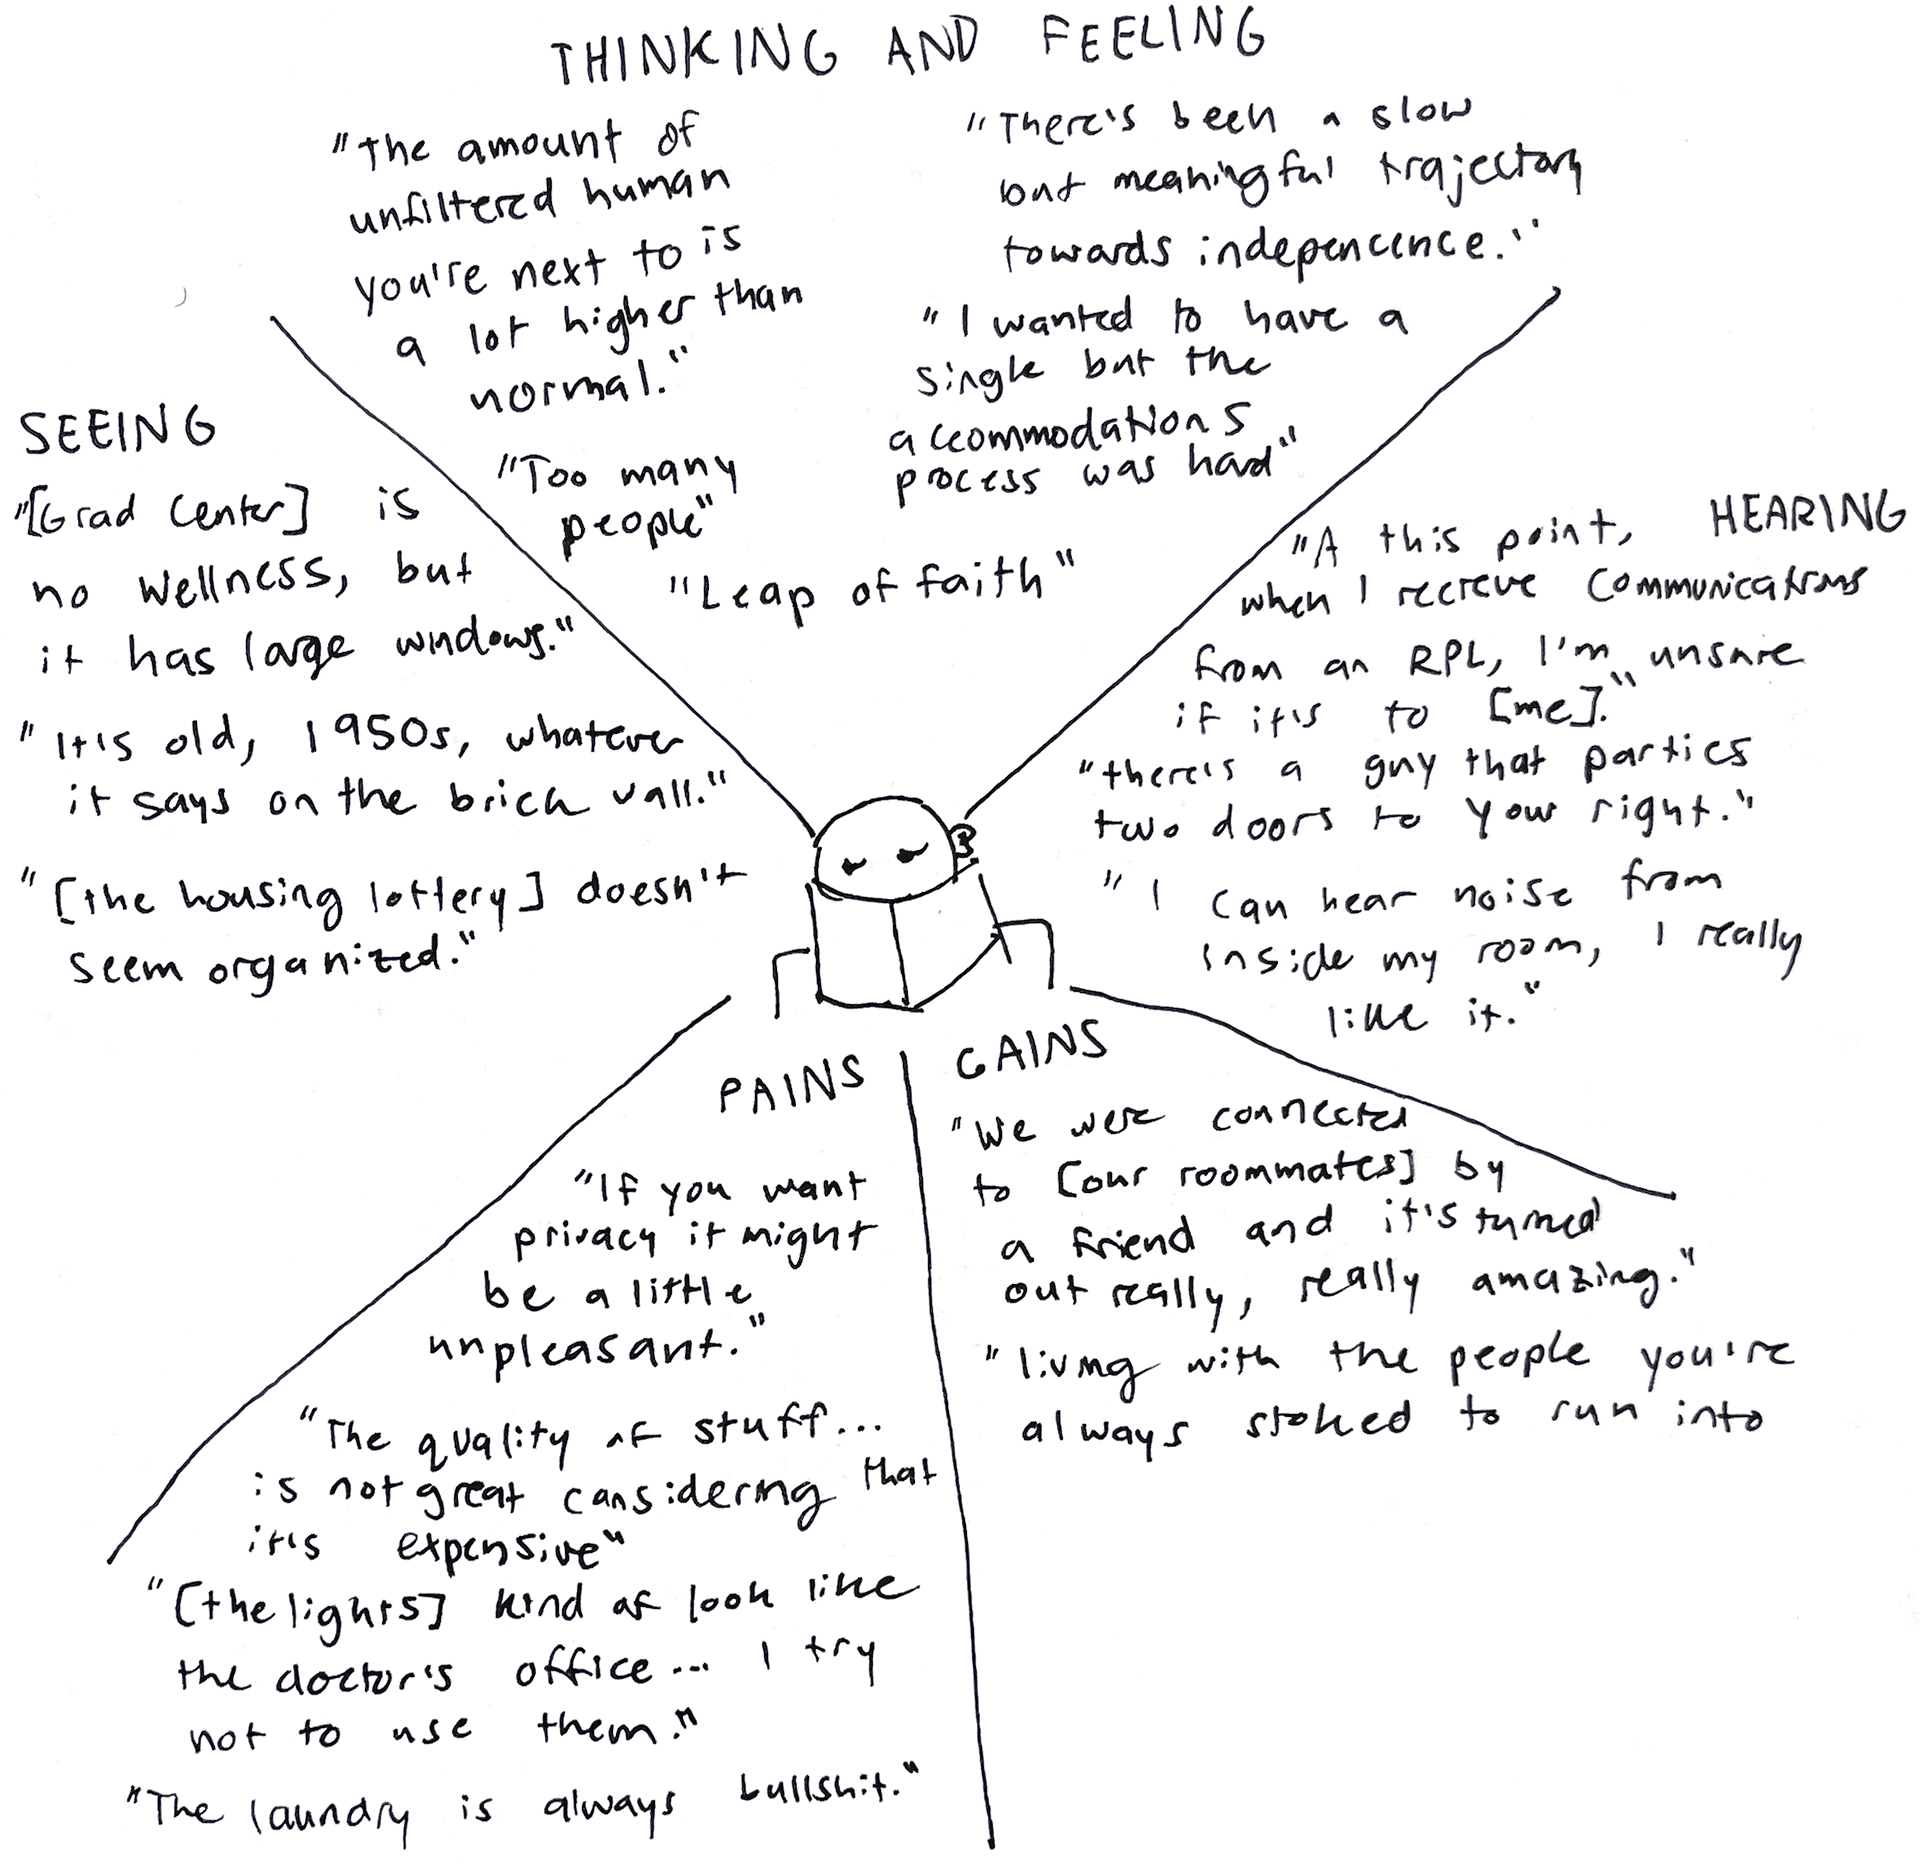 THINKING AND FEELING
"The amount of
unfiltered human
you're next to is
a lot higher than
normal."
"Too many
people"
"There's been a slow
but meaningful trajectory
towards indepencence."
"I wanted to have a
single but the
accommodations
process was hard"
"Leap of faith"
SEEING
"[Grad Center] is
no wellness, but
it has large windows."
"It's old, 1950s, whatever
it says on the brick wall."
"[the housing lottery] doesn't
seem organized."
HEARING
"A this point,
when I recieve communications
from an RPL, I'm unsure
if it's to [me]."
"there's a guy that parties
two doors to your right."
"I can hear noise from
inside my room, I really
like it."
PAINS
"If you want
privacy it might
be a little
unpleasant."
"The quality of stuff...
is not great considering that
it's expensive"
"[the lights] kind of look like
the doctor's office... I try
not to use them."
"The laundry is always bullshit."
GAINS
"We were connected
to [our roommates] by
a friend and it's turned
out really, really amazing."
"living with the people you're
always stoked to run into